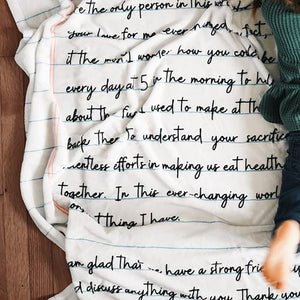 e the only person in this w
your love for me ever
it the m I wonder how you could be
every day at 5 in the morning to h
about the fu I used to make at th
back then To understand your sacrifice
entless efforts in making us eat health
together. In this ever-changing worl
t thing I have.
am glad tha we have a strong fri
d discuss anything with you. Thank you